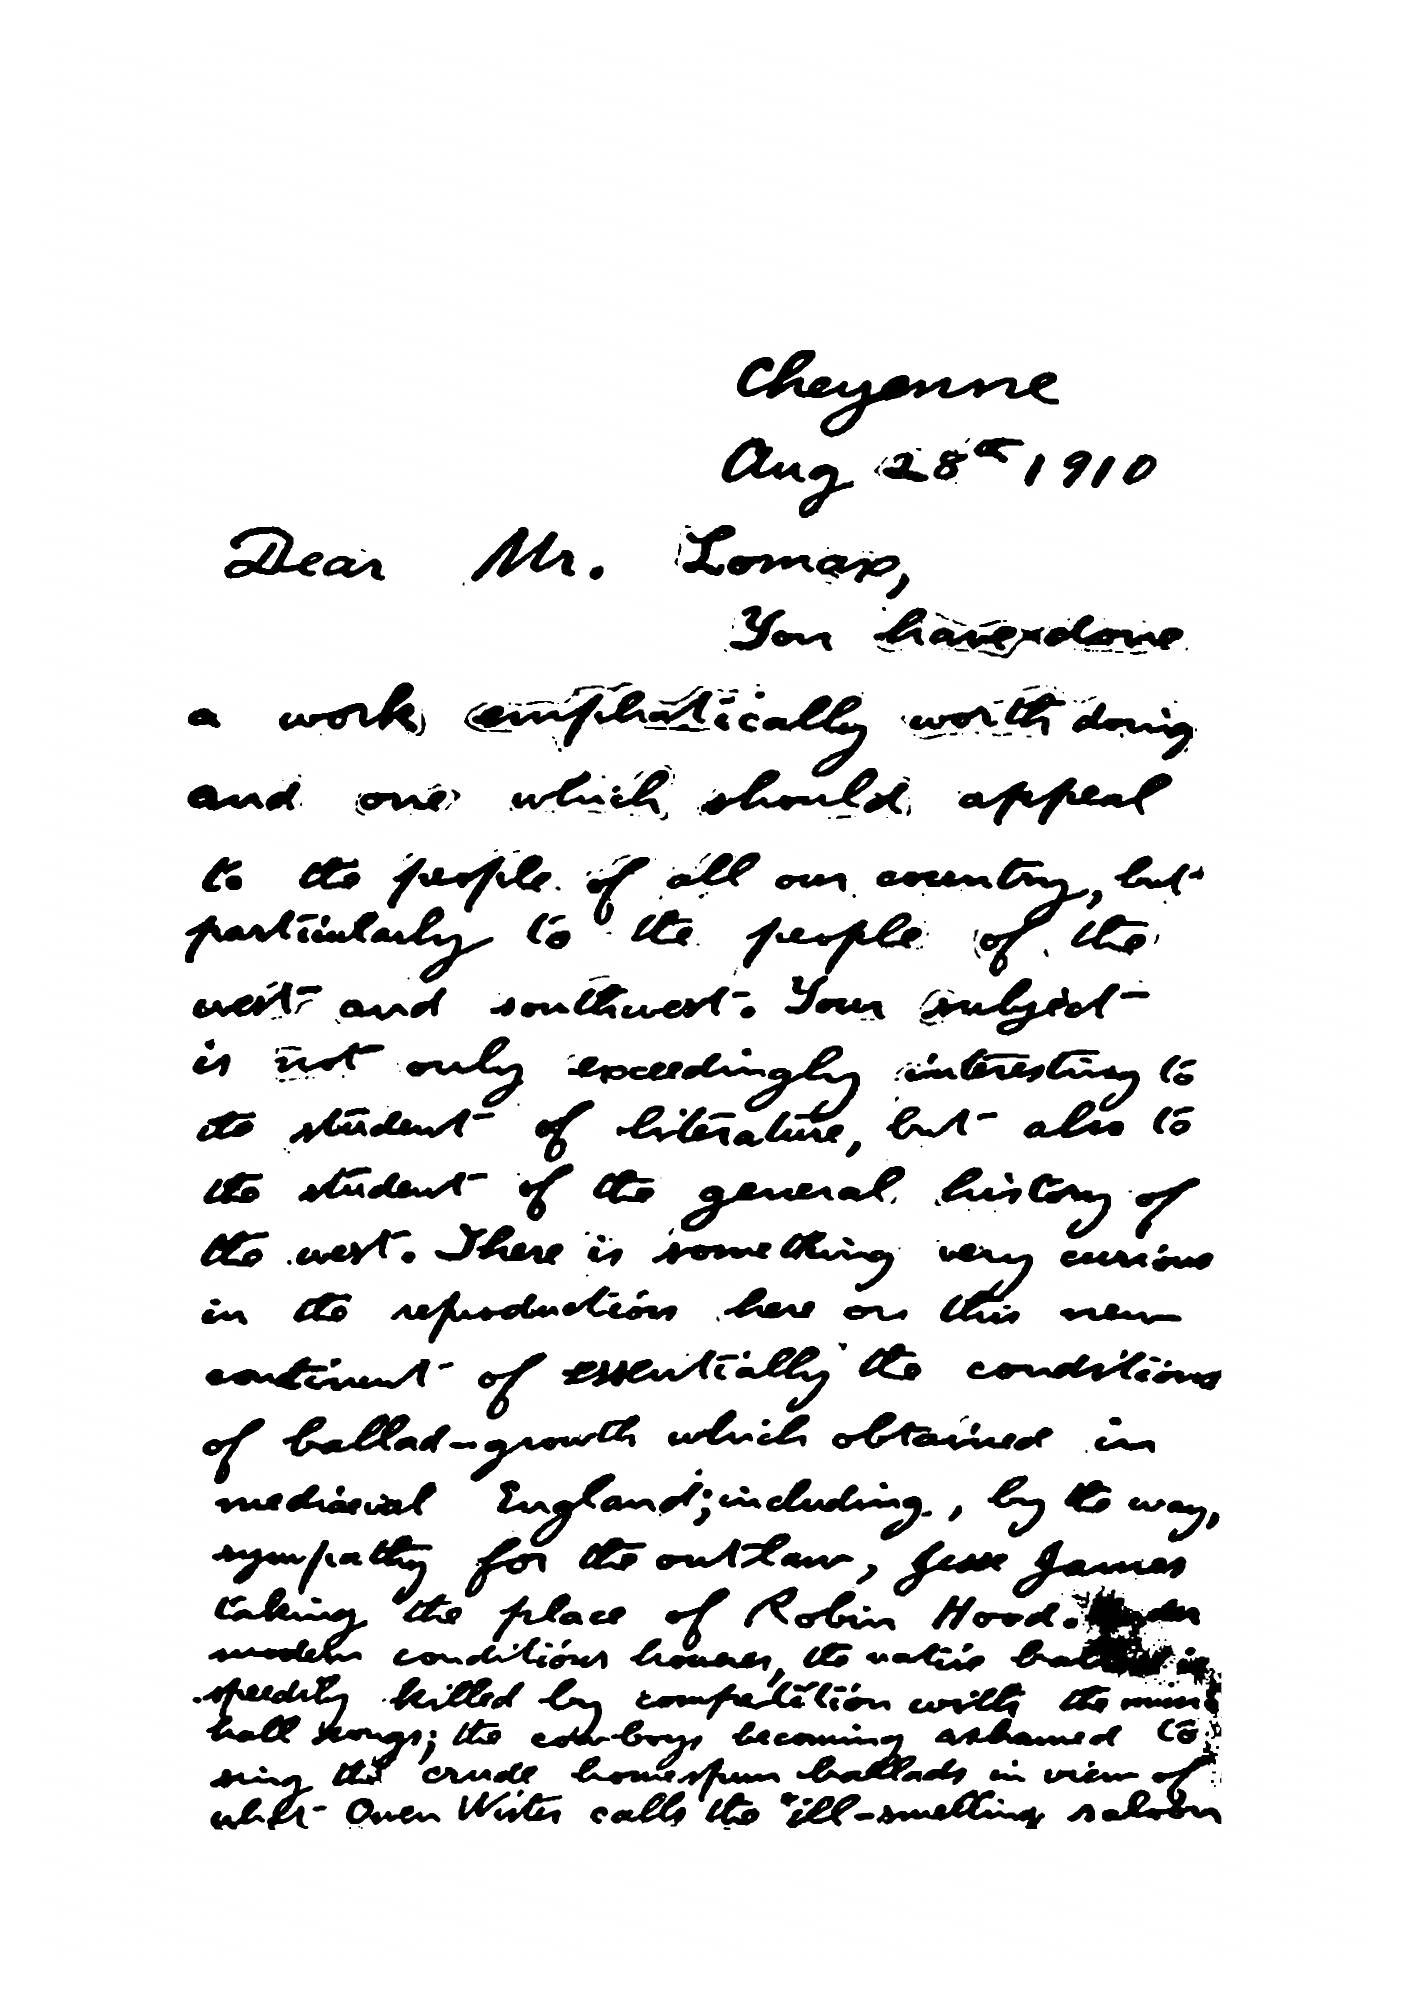 Cheyenne
Aug 28th 1910
Dear Mr. Lomax,
You have done
a work emphatically worth doing
and one which should appeal
to the people of all our country, but
particularly to the people of the
west and southwest. Your subject
is not only exceedingly interesting to
the student of literature, but also to
the student of the general history of
the west. There is something very curious
in the reproduction here on this new
continent of essentially the conditions
of ballad-growth which obtained in
mediaeval England; including, by the way,
sympathy for the outlaw, Jesse James
taking the place of Robin Hood. Under
modern conditions however, the native ballad is
speedily killed by competition with the music
hall songs; the cow-boys becoming ashamed to
sing the crude homespun ballads in view of
what Owen Wister calls the "ill-smelling saloon